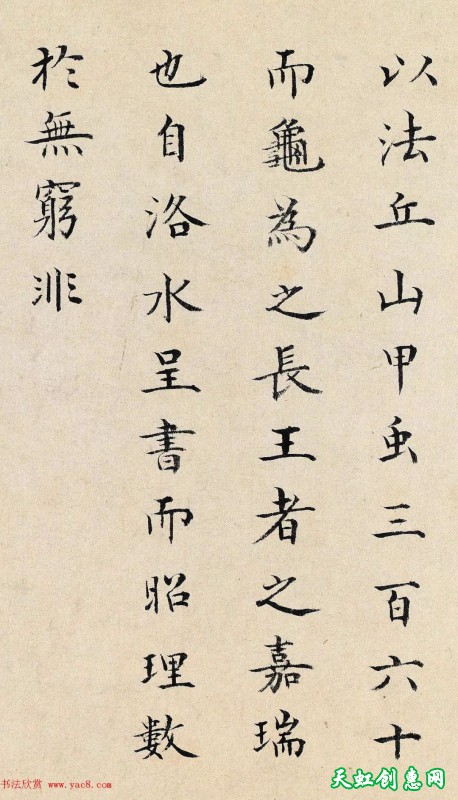 以法丘山甲虫三百六十
而龜為之長王者之嘉瑞
也自洛水呈書而昭理數
於無窮非
书法欣赏 www.yac8.com
天虹创惠网